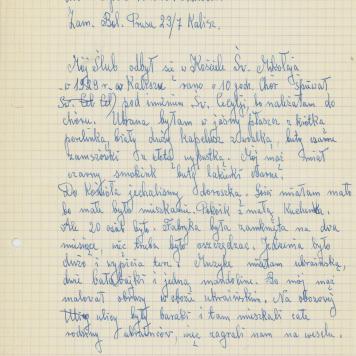 Zam. Bol. Prusa 23/7 Kalisz.
Mój Ślub odbył się w Kościele Św. Mikołaja
w 1929 r. w Kaliszu rano o 10 godz. Chór śpiewał
pod imieniem Św. Cecylji, bo należałam do
chóru. Ubrana byłam w jasny płaszcz z krótką
pelerinką, biały duży kapelusz z woalką, buty czarne
zamszówki ze złotą wypustką. Mój mąż miał
czarny smokink buty lakierki czarne.
Do Kościoła jechaliśmy dorożką. Gości miałam mało
bo małe było mieszkanie. Pokoik z małą kuchenką.
Ale 20 osób było. Fabryka była zamknięta na dwa
miesiące, więc trzeba było oszczędzać. Jedzenia było
dużo i wypicia Muzykę miałam ukraińską,
dwie bałabajki i jedną mandolinę. Bo mój mąż
malował obrazy w obozie ukraińskim. Na obozowej
ulicy były baraki i tam mieszkali całe
rodziny ukraińców, więc zagrali nam na weselu.